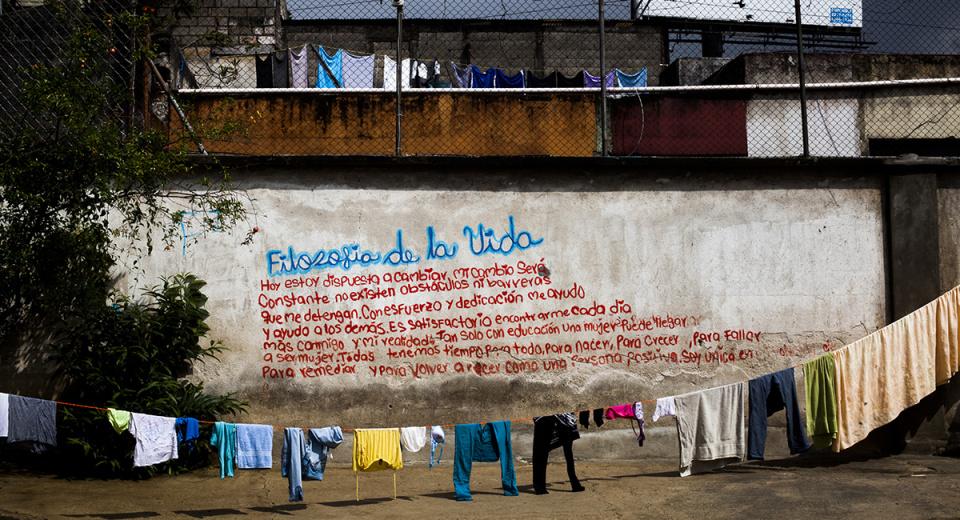 Filosofia de la Vida
Hoy estoy dispuesta a cambiar, mi cambio Será
Constante no existen obstáculos ni barreras
que me detengan. Con esfuerzo y dedicación me ayudo
y ayudo a los demás. Es satisfactorio encontrarme cada día
más conmigo y mi realidad. Tan solo con educación una mujer Puede llegar
a ser mujer. Todas tenemos tiempo Para todo, Para nacer, Para Crecer, Para Fallar
Para remediar y para volver a nacer como una persona Positiva. Soy unica en